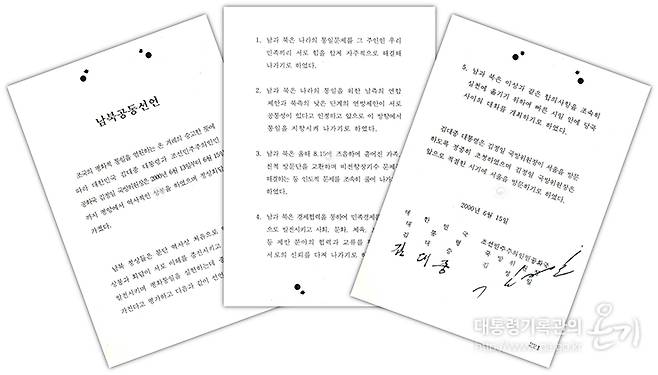 남북공동선언
조국의 평화적 통일을 염원하는 온 겨레의 숭고한 뜻에
따라 대한민국 김대중 대통령과 조선민주주의인민
공화국 김정일 국방위원장은 2000년 6월 13일부터 6월 15일
까지 평양에서 역사적인 상봉을 하였으며 정상회담
가졌다.
남북 정상들은 분단 역사상 처음으로
상봉과 회담이 서로 이해를 증진시키고
발전시키며 평화통일을 실현하는데
가진다고 평가하고 다음과 같이 선언
1. 남과 북은 나라의 통일문제를 그 주인인 우리
민족끼리 서로 힘을 합쳐 자주적으로 해결해
나가기로 하였다.
2. 남과 북은 나라의 통일을 위한 남측의 연합
제안과 북측의 낮은 단계의 연방제안이 서로
공통성이 있다고 인정하고 앞으로 이 방향에서
통일을 지향시켜 나가기로 하였다.
3. 남과 북은 올해 8.15에 즈음하여 흩어진 가족,
친척 방문단을 교환하며 비전향장기수 문제
해결하는 등 인도적 문제를 조속히 풀어 나가
하였다.
4. 남과 북은 경제협력을 통하여 민족경제를
으로 발전시키고 사회, 문화, 체육,
등 제반 분야의 협력과 교류를
서로의 신뢰를 다져 나가기로
5. 남과 북은 이상과 같은 합의사항을 조속히
실천에 옮기기 위하여 빠른 시일 안에 당국
사이의 대화를 개최하기로 하였다.
김대중 대통령은 김정일 국방위원장이 서울을 방문
하도록 정중히 초청하였으며 김정일 국방위원장은
앞으로 적절한 시기에 서울을 방문하기로 하였다.
2000년 6월 15일
대한민국 조선민주주의인민공화국
대통령 국방위원장
김대중 김정일
김대중
대통령기록관의 온기